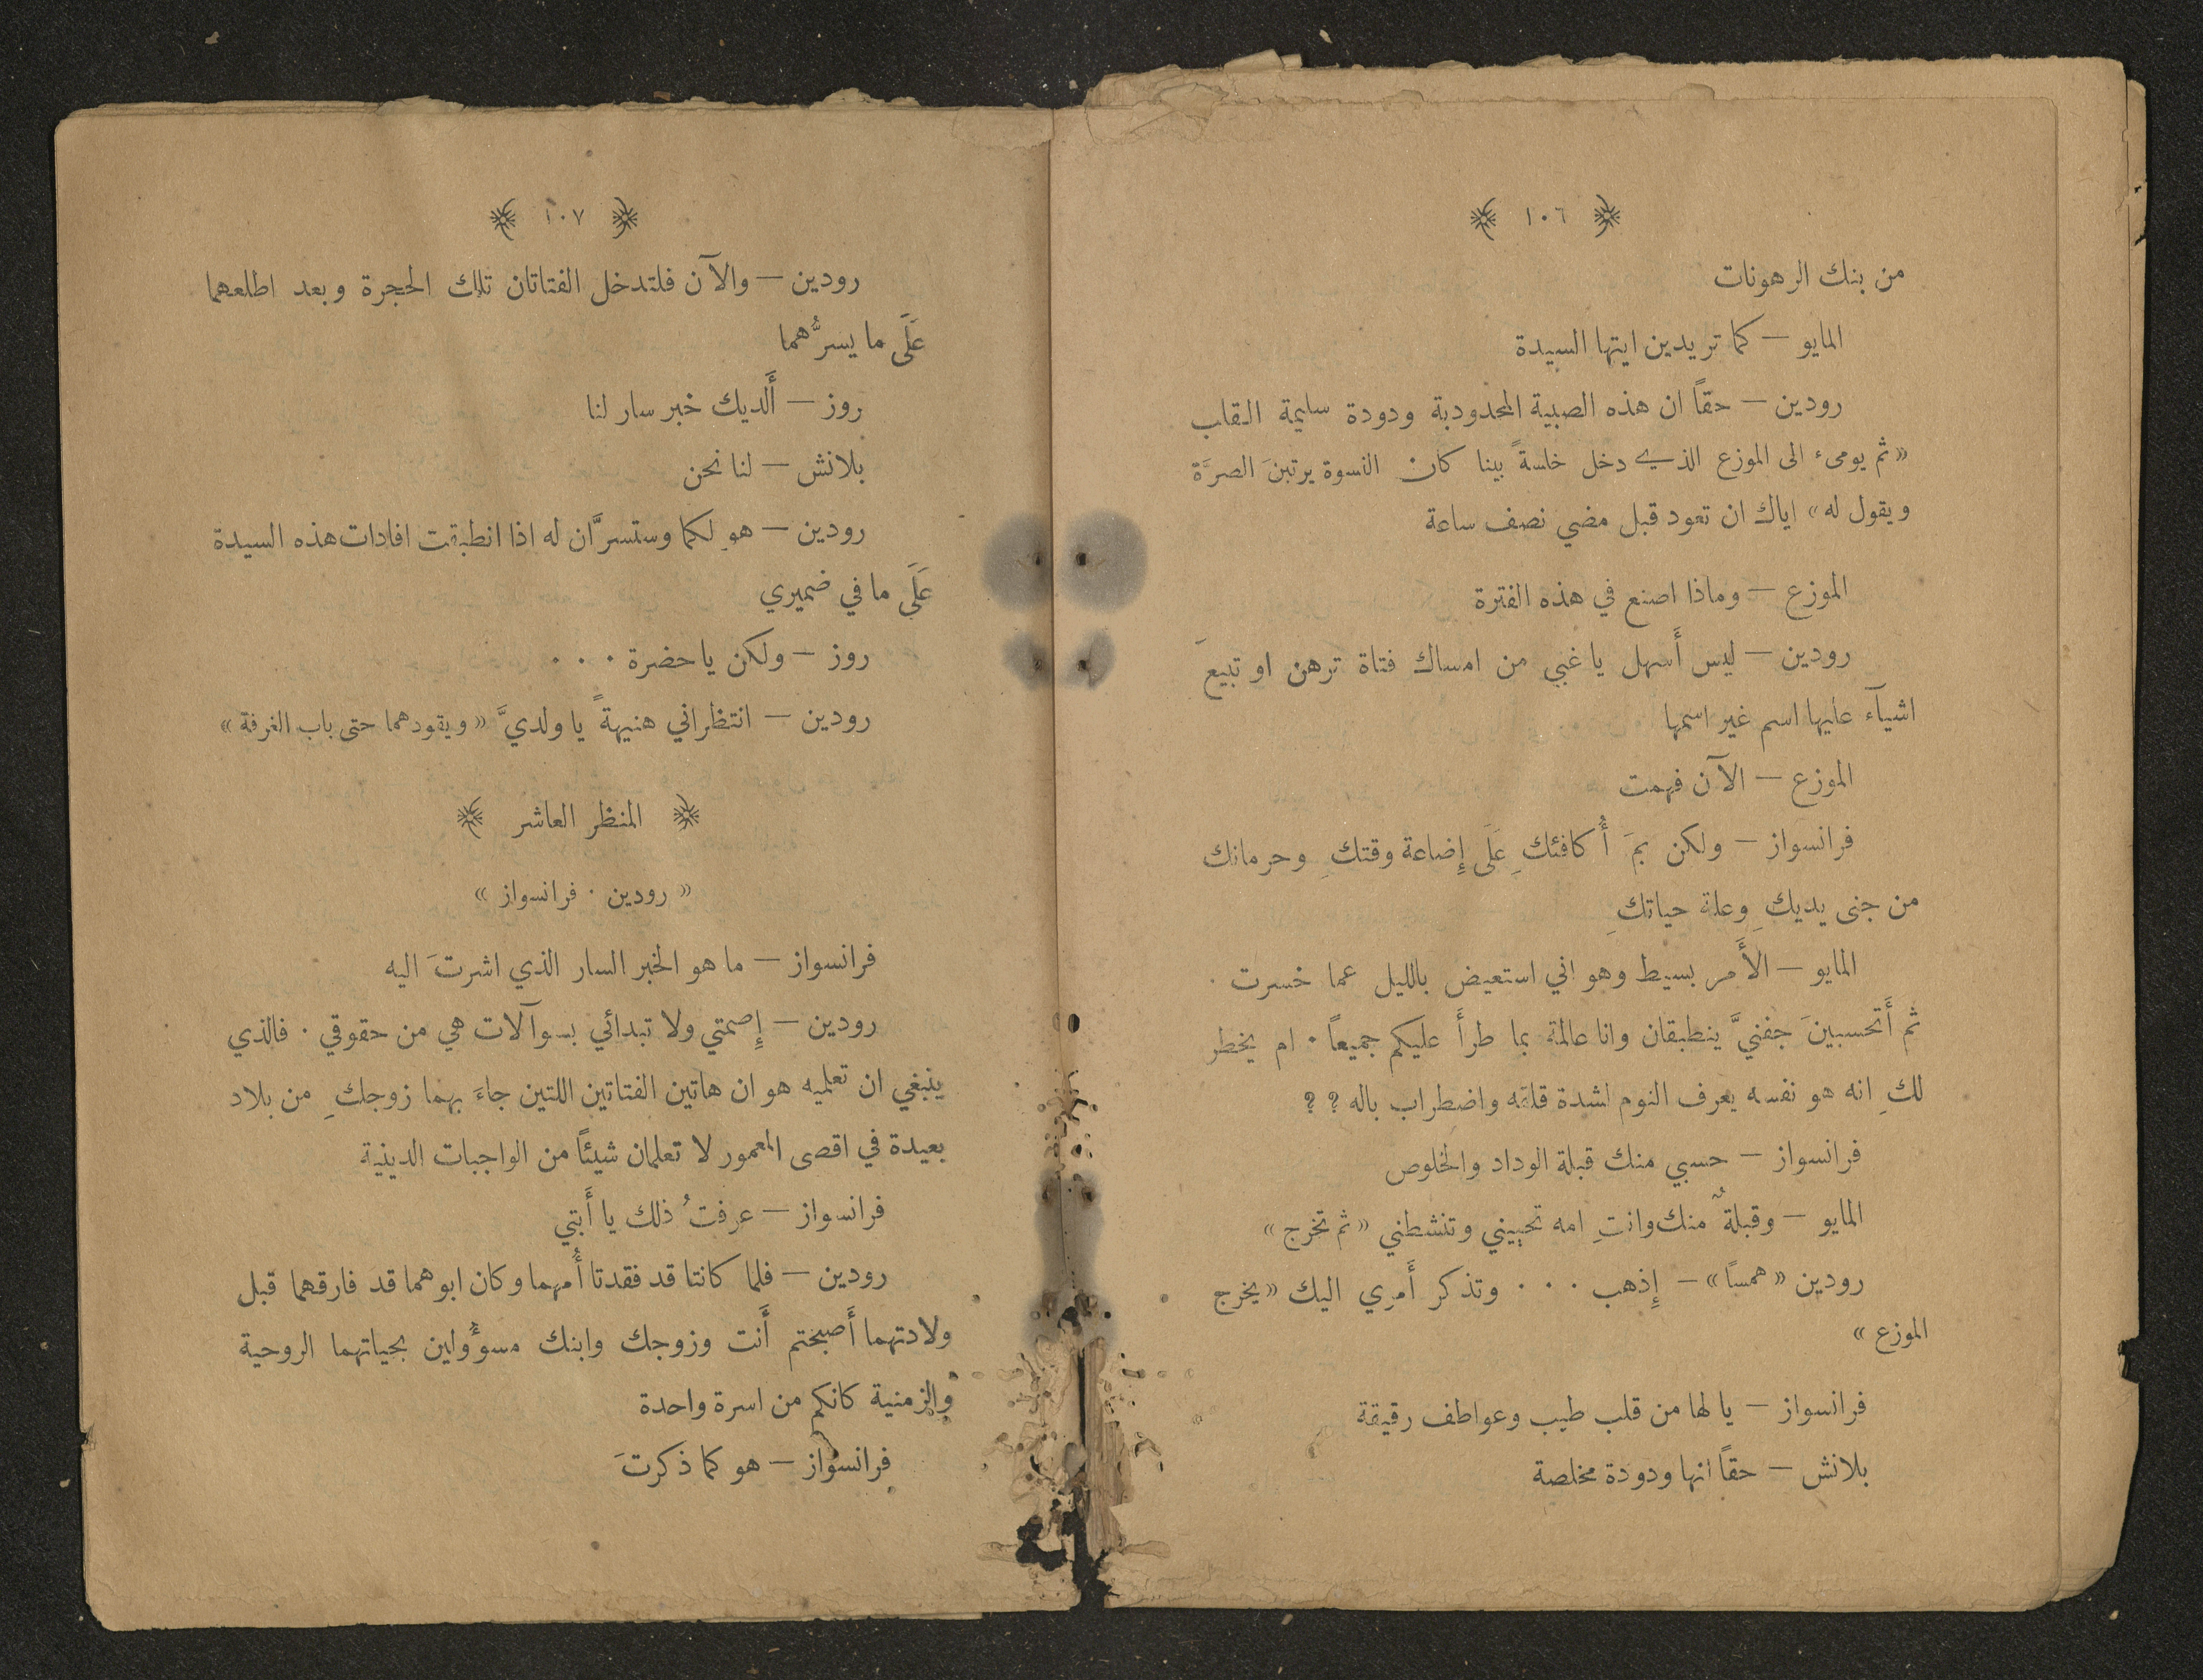 ١٠٦
من بنك الرهونات
المايو — كما تريدين ايتها السيدة
رودين — حقاً ان هذه الصبية المحدودبة ودودة سليمة القلب
«ثم يومىء الى الموزع الذي دخل خلسةً بينا كان النسوة يرتبنَ الصرَّة
ويقول له» اياك ان تعود قبل مضي نصف ساعة
الموزع — وماذا اصنع في هذه الفترة
رودين — ليس أَسهل يا غبي من امساك فتاة ترهن او تبيعَ
اشيآء عليها اسم غير اسمها
الموزع — الآن فهمت
فرانسواز — ولكن بمَ أُكافئكِ عَلَى إِضاعة وقتكِ وحرمانك
من جنى يديكِ وعلة حياتكِ
المايو — الأَمر بسيط وهو اني استعيض بالليل عما خسرت ·
ثم أَتحسبينَ جفنيَّ ينطبقان وانا عالمة بما طرأَ عليكم جميعاً · ام يخطر
لكِ انه هو نفسه يعرف النوم لشدة قلقه واضطراب باله ؟ ؟
فرانسواز — حسبي منك قبلة الوداد والخلوص
المايو — وقبلةٌ منك وانتِ امه تحييني وتنشطني «ثم تخرج»
رودين «همساً» — إِذهب · · · وتذكر أَمري اليك «يخرج
الموزع»
فرانسواز — يا لها من قلب طيب وعواطف رقيقة
بلانش — حقاً انها ودودة مخلصة
١٠٧
رودين — والآن فلتدخل الفتاتان تلك الحجرة وبعد اطلعهما
عَلَى ما يسرُّهما
روز — أَلديك خبر سار لنا
بلانش — لنا نحن
رودين — هو لكما وستسرَّان له اذا انطبقت افادات هذه السيدة
عَلَى ما في ضميري
روز — ولكن يا حضرة · · ·
رودين — انتظراني هنيهةً يا ولديَّ «ويقودهما حتى باب الغرفة»
المنظر العاشر
«رودين · فرانسواز»
فرانسواز — ما هو الخبر السار الذي اشرتَ اليه
رودين — إِصمتي ولا تبدائي بسوآلات هي من حقوقي · فالذي
ينبغي ان تعلميه هو ان هاتين الفتاتين اللتين جاءَ بهما زوجكِ من بلاد
بعيدة في اقصى المعمور لا تعلمان شيئاً من الواجبات الدينية
فرانسواز — عرفتُ ذلك يا أَبتي
رودين — فلما كانتا قد فقدتا أُمهما وكان ابوهما قد فارقهما قبل
ولادتهما أَصبحتم أَنت وزوجك وابنك مسؤُولين بحياتهما الروحية
والزمنية كانكم من اسرة واحدة
فرانسواز — هو كما ذكرتَ